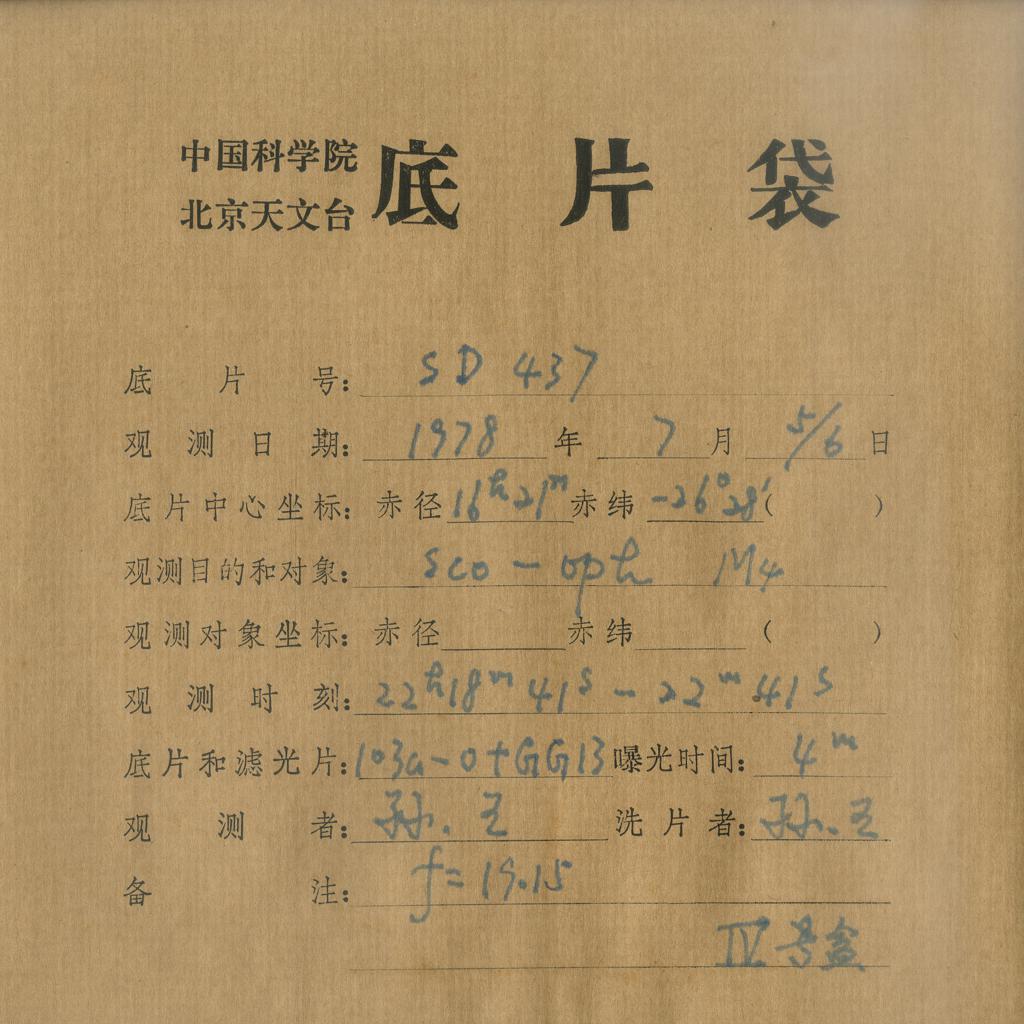 中国科学院
北京天文台
底片袋
底片号：SD 437
观测日期：1978年7月5/6日
底片中心坐标：赤径16ʰ21ᵐ赤纬-26°28′( )
观测目的和对象：Sco-oph M4
观测对象坐标：赤径 赤纬 ( )
观测时刻：22ʰ18ᵐ41ˢ-22ᵐ41ˢ
底片和滤光片：103a-O+GG13 曝光时间：4ᵐ
观测者：孙.王 洗片者：孙.王
备注：f=19.15
IV号盒